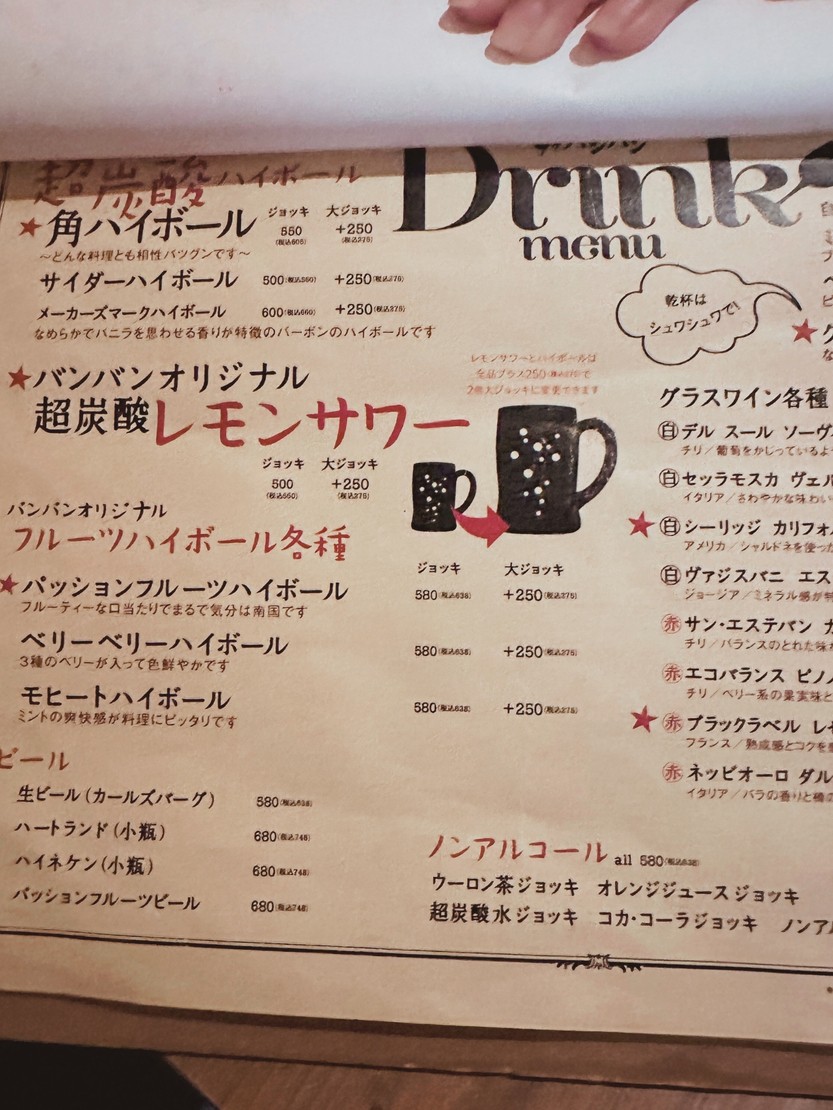 超炭酸ハイボール
Drink
menu
ジョッキ 大ジョッキ
★角ハイボール 550(税込605) +250(税込275)
~どんな料理とも相性バツグンです~
サイダーハイボール 500(税込550) +250(税込275)
メーカーズマークハイボール 600(税込660) +250(税込275)
なめらかでバニラを思わせる香りが特徴のバーボンのハイボールです
乾杯は
シュワシュワで!
★バンバンオリジナル
超炭酸レモンサワー
ジョッキ 大ジョッキ
500(税込550) +250(税込275)
レモンサワーとハイボールは
全品プラス250(税込275)で
2倍大ジョッキに変更できます
バンバンオリジナル
フルーツハイボール各種
ジョッキ 大ジョッキ
★パッションフルーツハイボール 580(税込638) +250(税込275)
フルーティーな口当たりでまるで気分は南国です
ベリーベリーハイボール 580(税込638) +250(税込275)
3種のベリーが入って色鮮やかです
モヒートハイボール 580(税込638) +250(税込275)
ミントの爽快感が料理にピッタリです
ビール
生ビール(カールズバーグ) 580(税込638)
ハートランド(小瓶) 680(税込748)
ハイネケン(小瓶) 680(税込748)
パッションフルーツビール 680(税込748)
グラスワイン各種
白 デル スール ソーヴ
チリ/葡萄をかじっているよ
白 セッラモスカ ヴェル
イタリア/さわやかな味わい
★白 シーリッジ カリフォ
アメリカ/シャルドネを使った
白 ヴァジスバニ エス
ジョージア/ミネラル感が特
赤 サン・エステバン カ
チリ/バランスのとれた味わ
赤 エコバランス ピノ
チリ/ベリー系の果実味と
★赤 ブラックラベル レ
フランス/熟成感とコクを
赤 ネッビオーロ ダル
イタリア/バラの香りと種の
ノンアルコール all 580(税込638)
ウーロン茶ジョッキ オレンジジュースジョッキ
超炭酸水ジョッキ コカ・コーラジョッキ ノンア